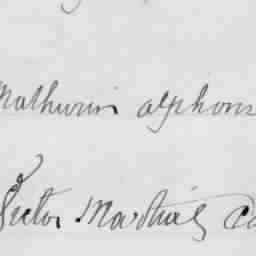 Mathurin alphons
Victor Martial Ca